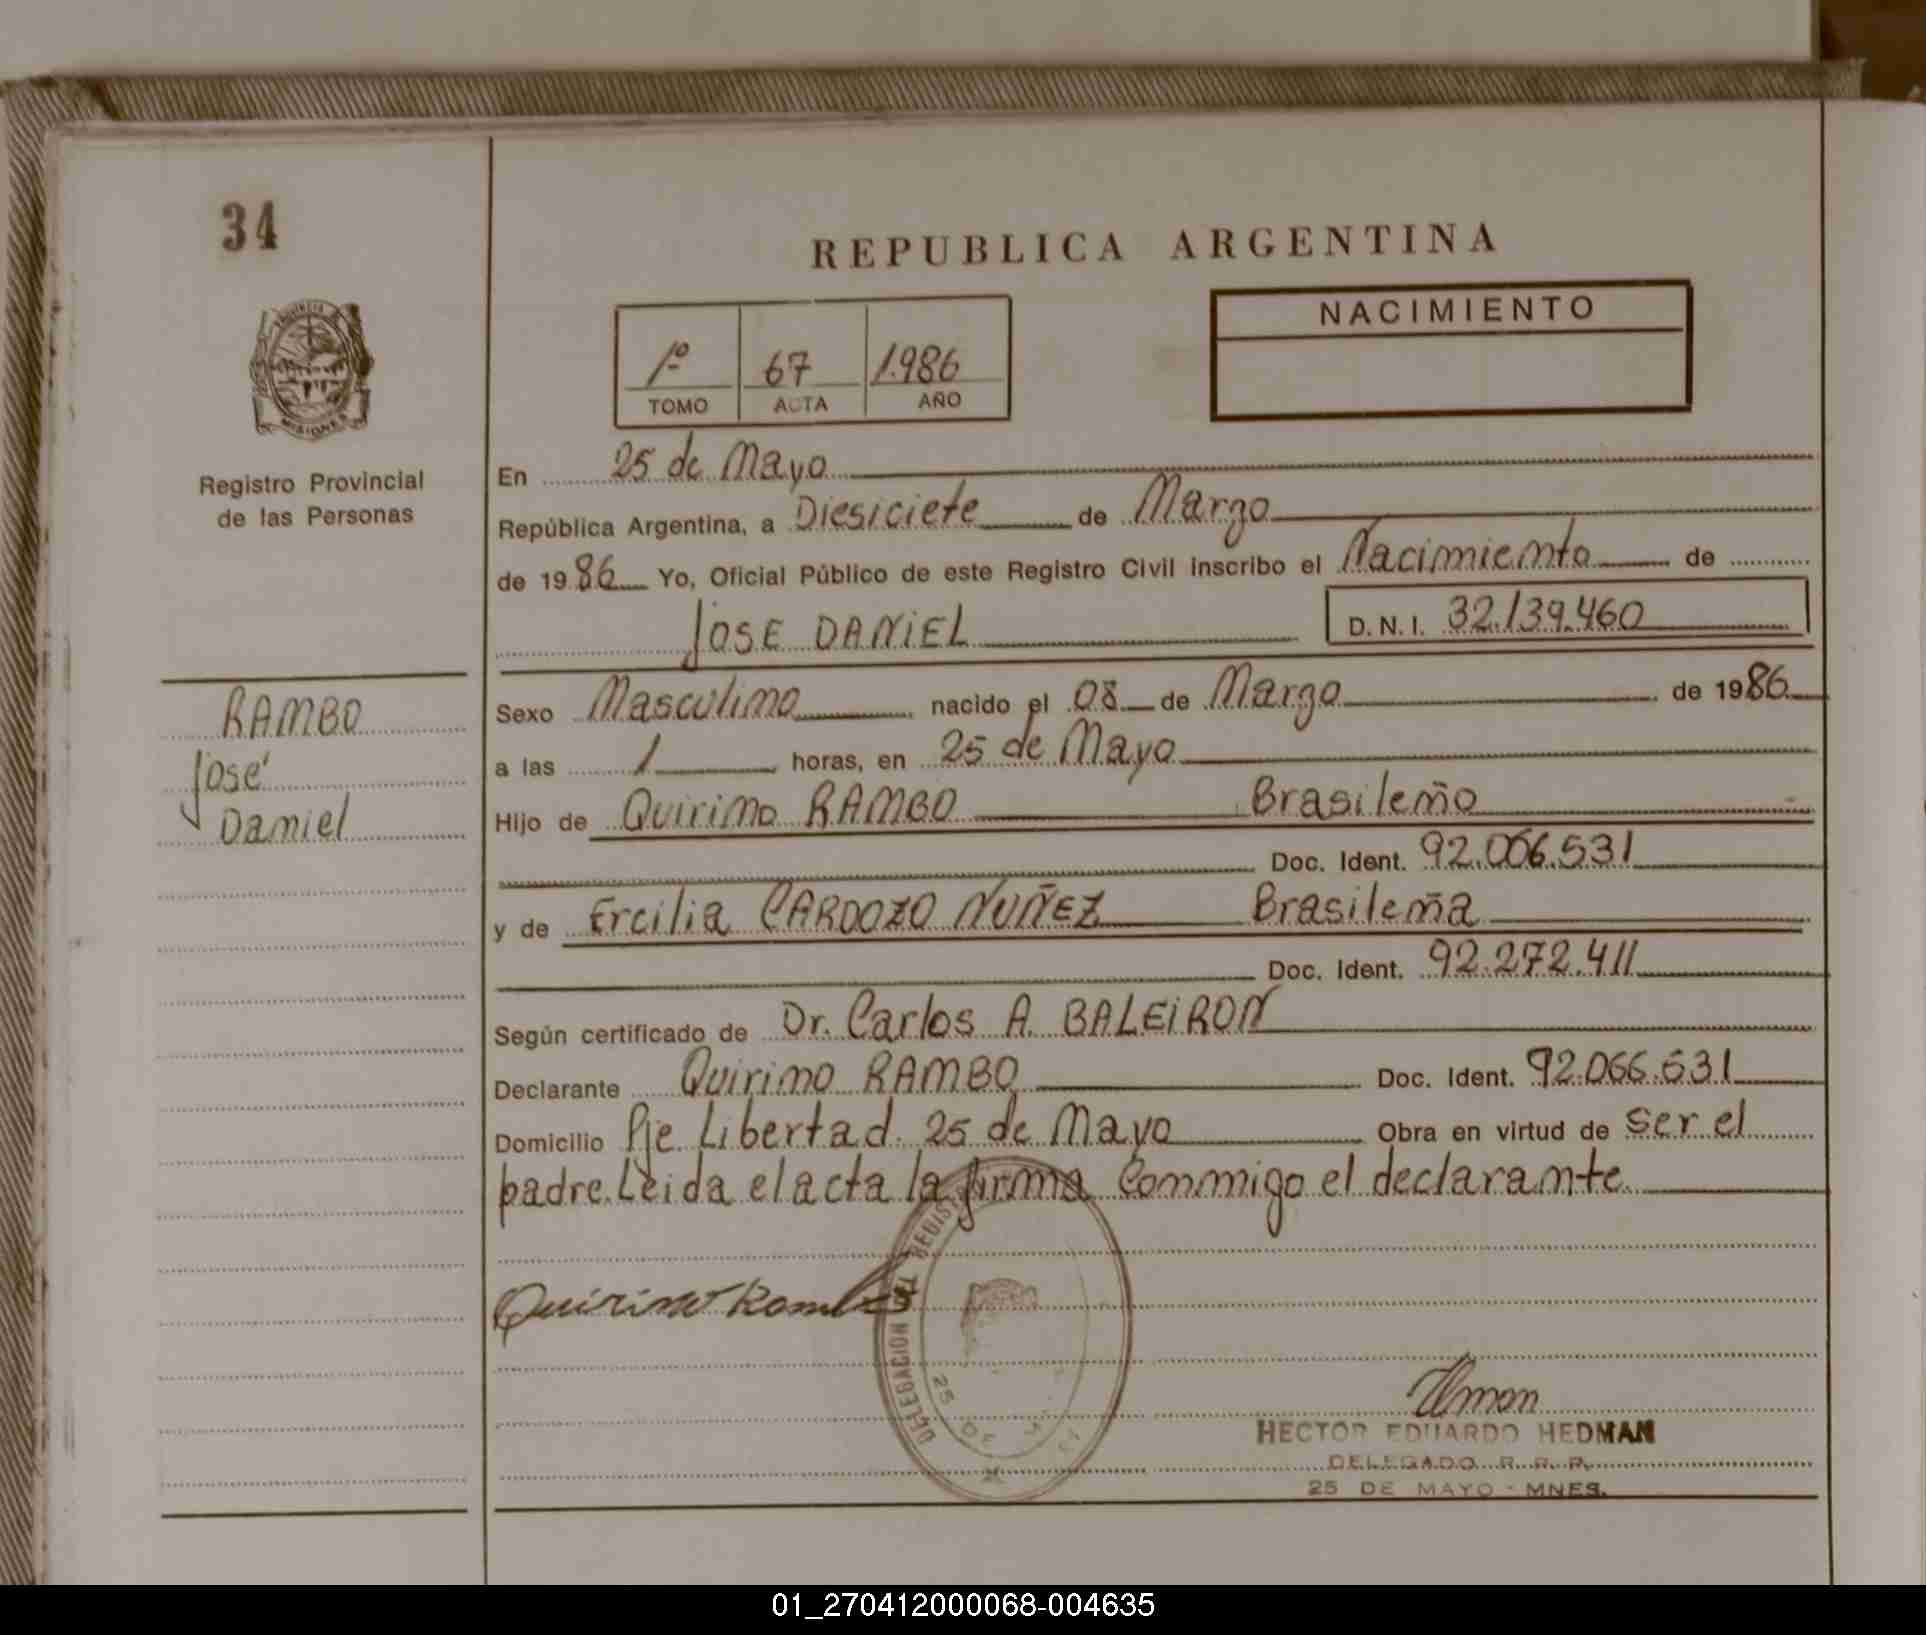 34
REPUBLICA ARGENTINA
NACIMIENTO
1º 67 1.986
TOMO ACTA AÑO
PROVINCIA DE
MISIONES
Registro Provincial
de las Personas
En 25 de Mayo
República Argentina, a Diesiciete de Marzo
de 1986 Yo, Oficial Público de este Registro Civil inscribo el Nacimiento de
JOSE DANIEL D.N.I. 32.139.460
RAMBO
José
Daniel
Sexo Masculino nacido el 08 de Marzo de 1986
a las 1 horas, en 25 de Mayo
Hijo de Quirino RAMBO Brasileño
Doc. Ident. 92.066.531
y de Ercilia CARDOZO NUÑEZ Brasileña
Doc. Ident. 92.272.411
Según certificado de Dr. Carlos A. BALEIRON
Declarante Quirino RAMBO Doc. Ident. 92.066.531
Domicilio Pje Libertad. 25 de Mayo Obra en virtud de ser el
padre. Leida el acta la firma Conmigo el declarante.
Quirino Rambo
DELEGACION DEL REGIST
25 DE MAYO
HECTOR EDUARDO HEDMAN
DELEGADO R. R. P.
25 DE MAYO - MNES.
01_270412000068-004635